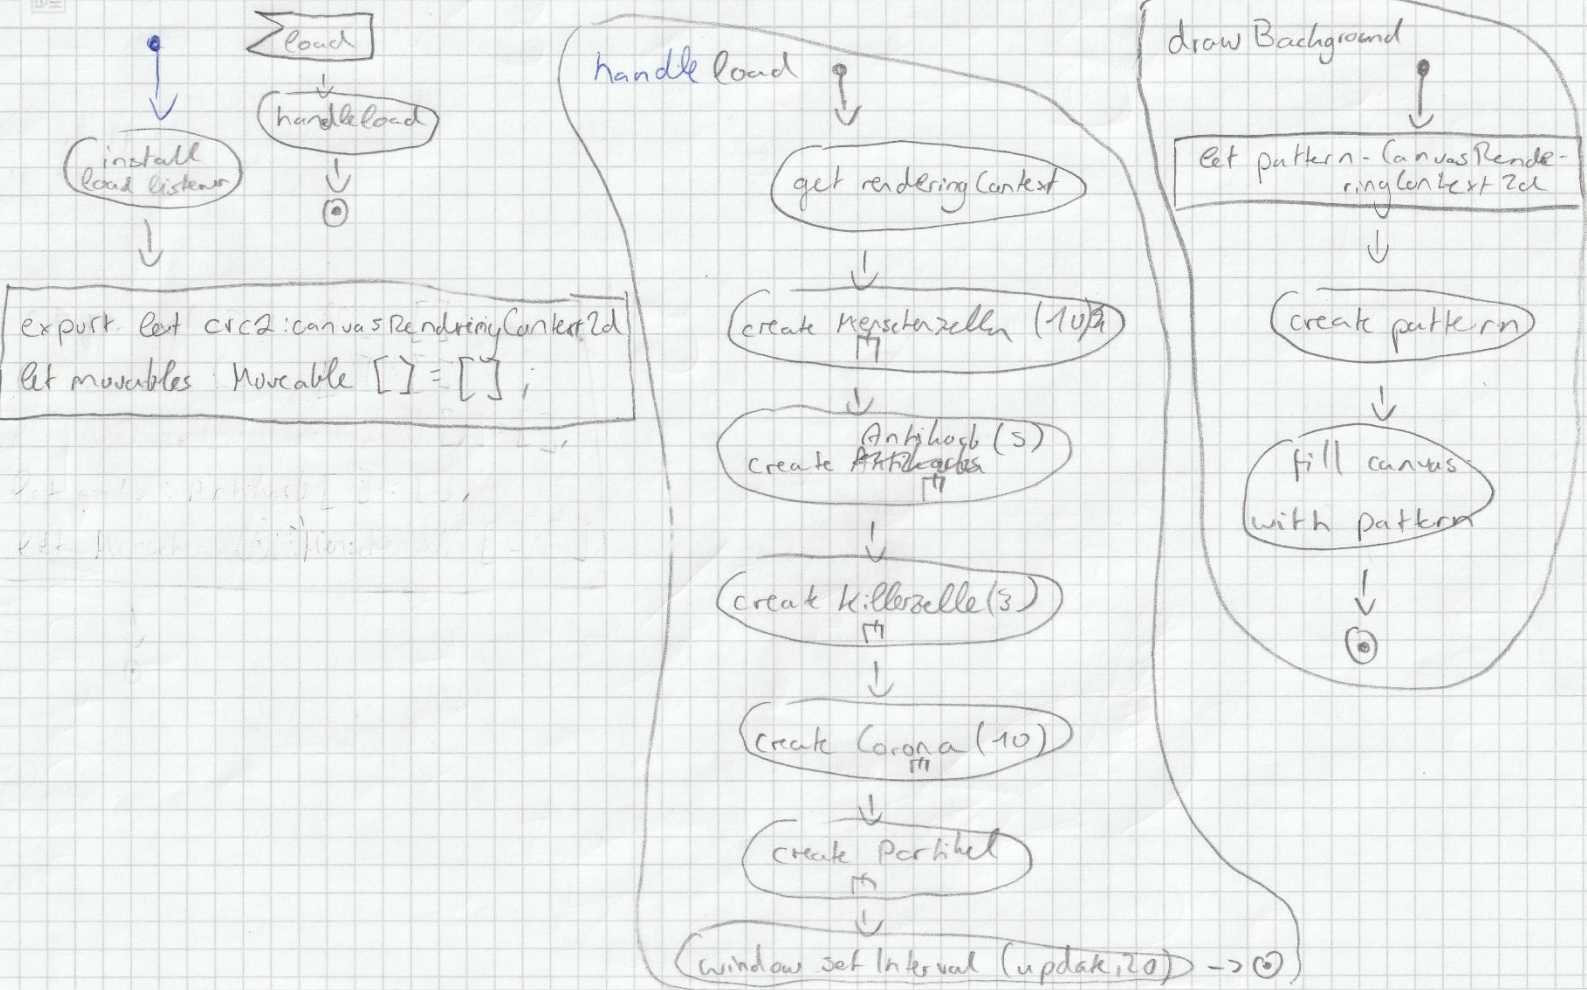 load
handleload
install
load listener
export let crc2:canvasRenderingContext2d
let movables : Moveable [] = [];
handle load
get renderingContext
create Menschenzellen (10)
Antikorb (5)
create
create Killerzelle (3)
create Corona (10)
create Partikel
window setInterval (update, 20)
draw Background
let pattern - CanvasRende-
ringContext2d
create pattern
fill canvas
with pattern